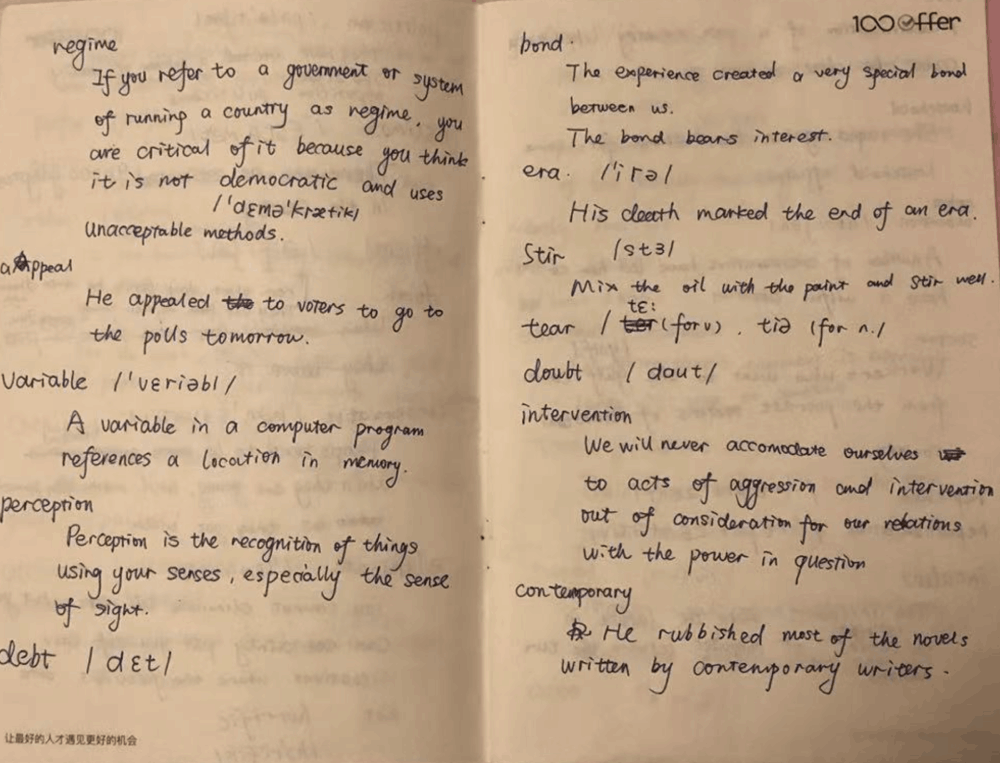 regime
If you refer to a government or system
of running a country as regime, you
are critical of it because you think
it is not democratic and uses
/'dɛmə'krætik/
unacceptable methods.
appeal
He appealed to voters to go to
the polls tomorrow.
variable /'vɛriəbl/
A variable in a computer program
references a location in memory.
perception
Perception is the recognition of things
using your senses, especially the sense
of sight.
debt /dɛt/
让最好的人才遇见更好的机会
100 offer
bond.
The experience created a very special bond
between us.
The bond bears interest.
era. /'irə/
His death marked the end of an era.
Stir /stɜ/
Mix the oil with the paint and stir well.
tɛ:
tear / (for v) . tiə (for n./)
doubt /daut/
intervention
We will never accomodate ourselves
to acts of aggression and intervention
out of consideration for our relations
with the power in question
contemporary
He rubbished most of the novels
written by contemporary writers.